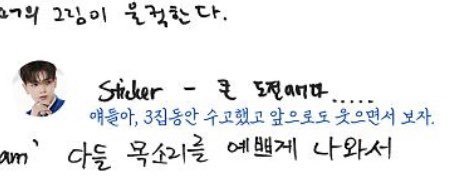 그림이 울컥한다.
Sticker - 큰
얘들아, 3집동안 수고했고 앞으로도 웃으면서 보자.
am' 다들 목소리를 예쁘게 나와서